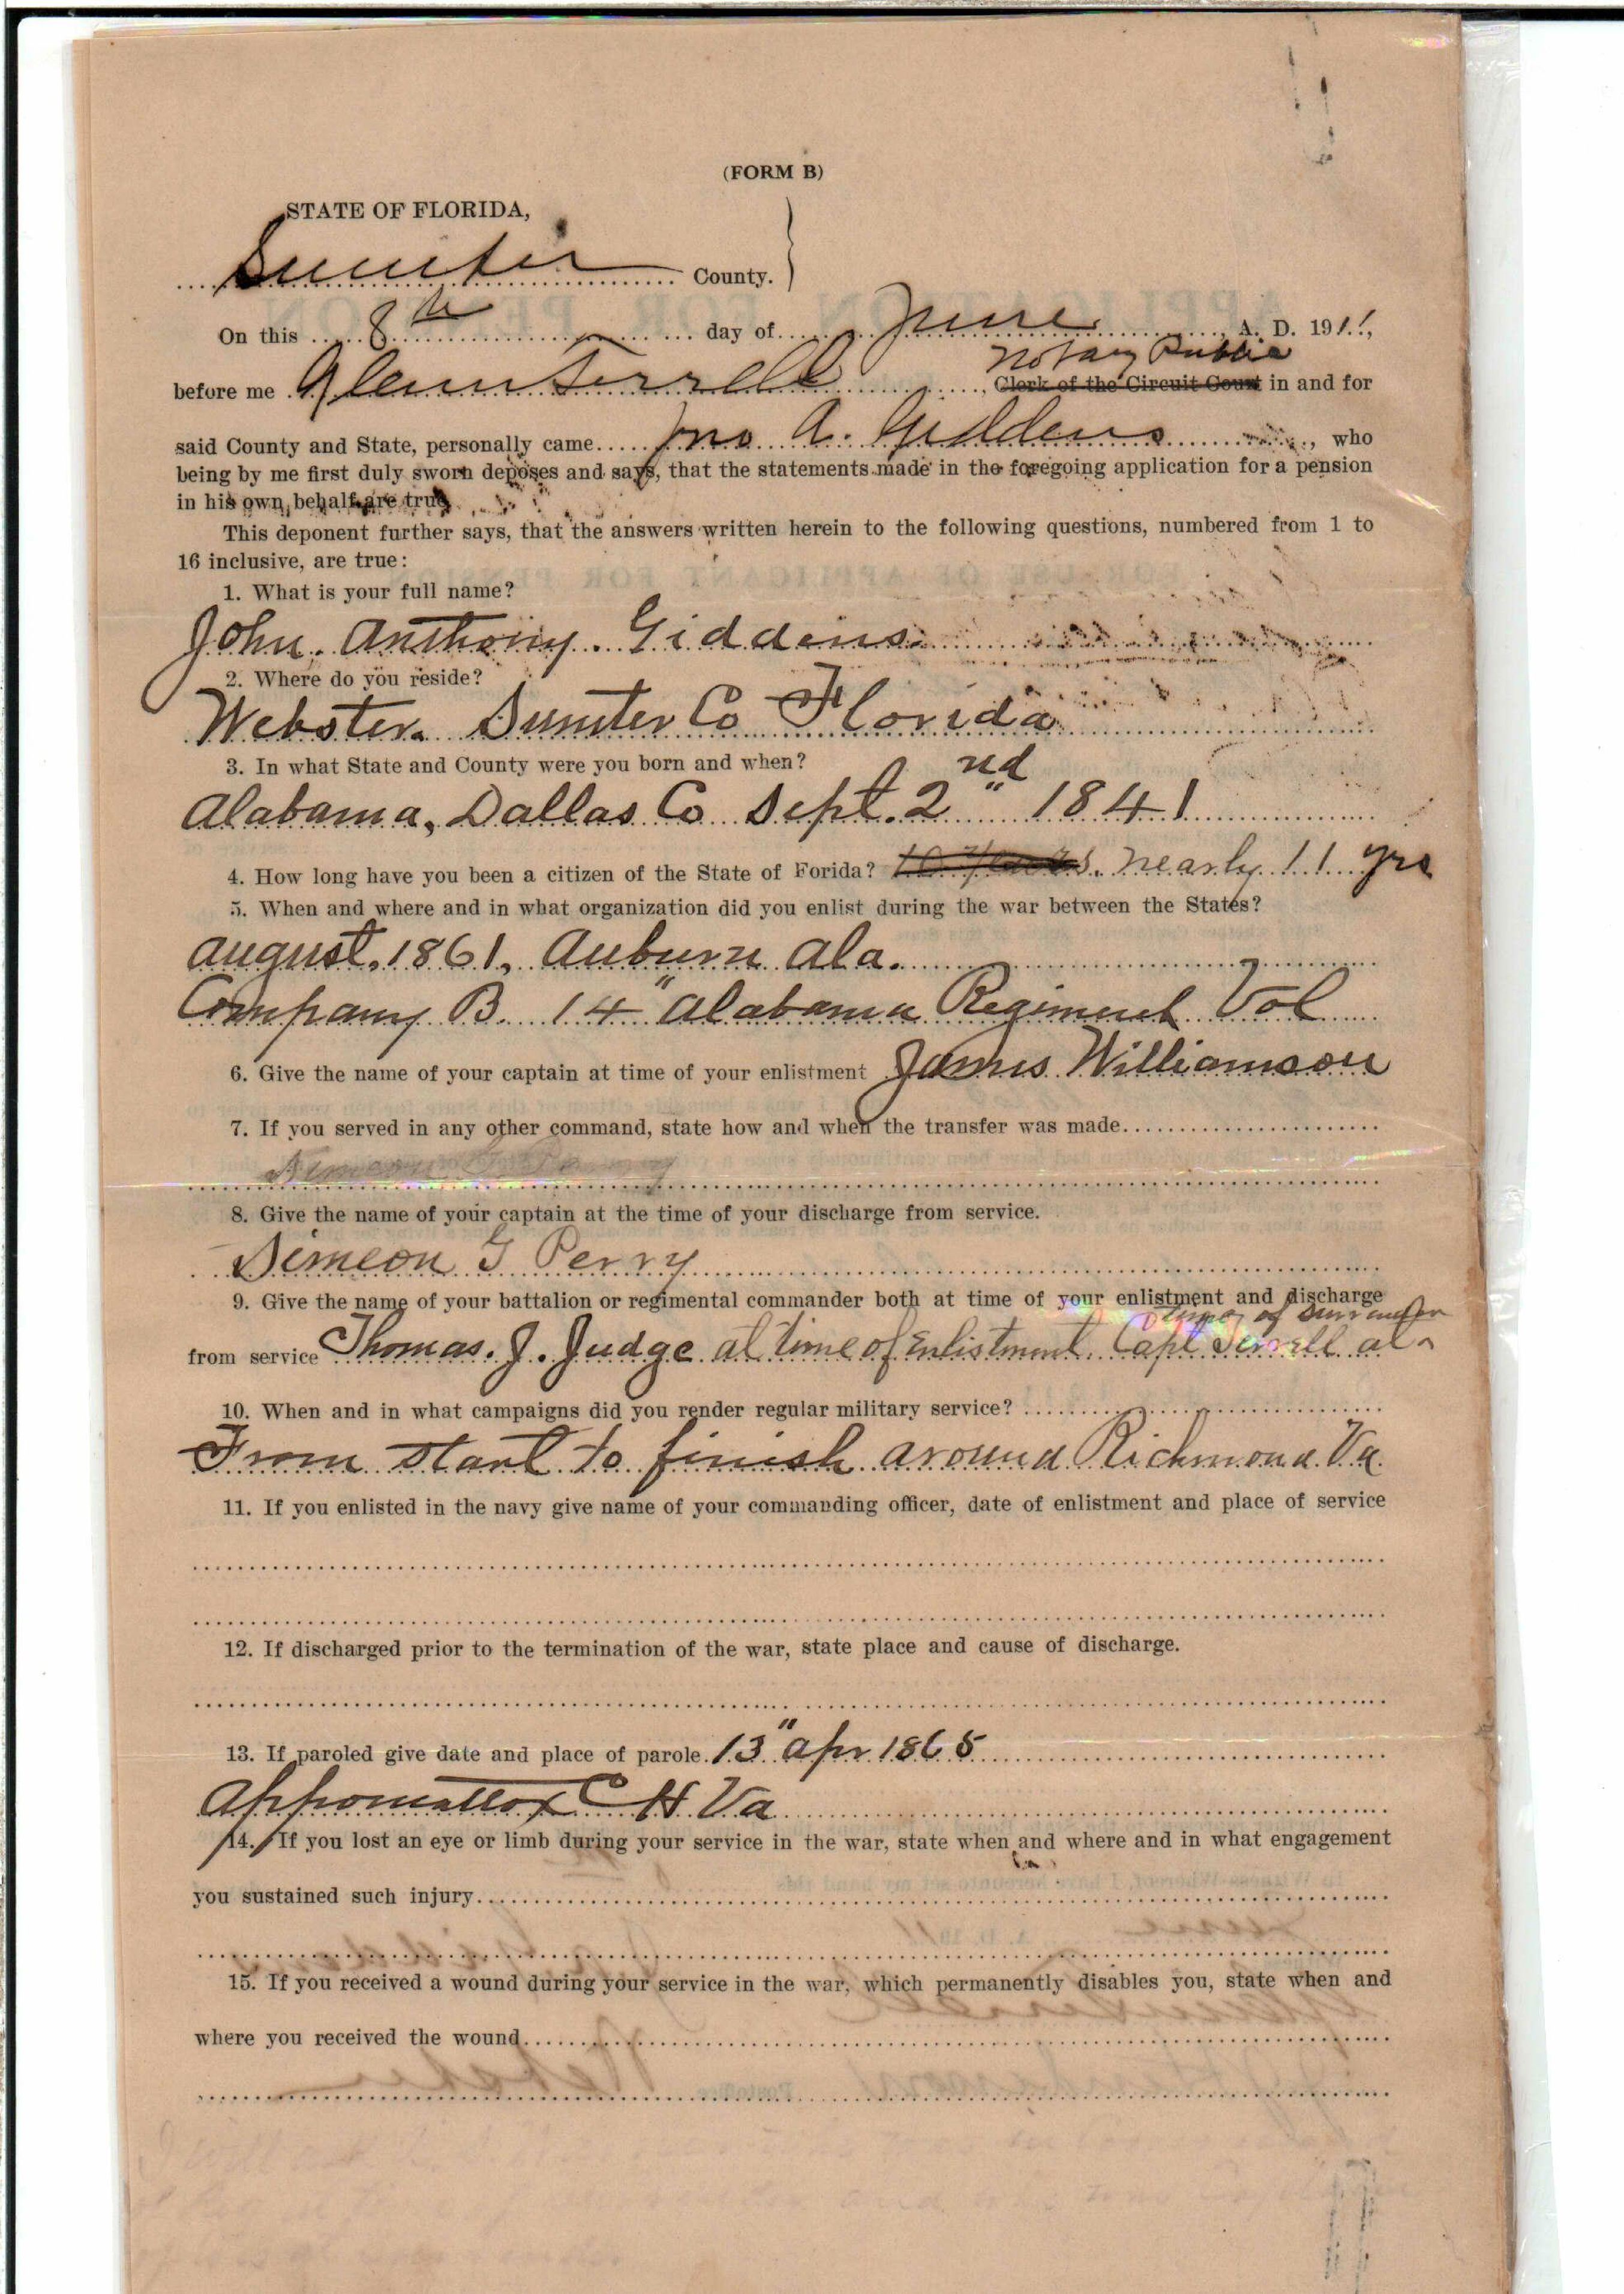 (FORM B)
STATE OF FLORIDA,
Sumter County.
On this 8th day of June, A. D. 1911,
Notary Public
before me Glenn Terrell, Clerk of the Circuit Court in and for
said County and State, personally came Jno A. Giddens, who
being by me first duly sworn deposes and says, that the statements made in the foregoing application for a pension
in his own behalf are true.
This deponent further says, that the answers written herein to the following questions, numbered from 1 to
16 inclusive, are true:
1. What is your full name?
John. Anthony. Giddens.
2. Where do you reside?
Webster. Sumter Co Florida
3. In what State and County were you born and when?
Alabama, Dallas Co Sept. 2nd 1841
4. How long have you been a citizen of the State of Forida? 10 years. nearly 11 yrs
5. When and where and in what organization did you enlist during the war between the States?
August, 1861, Auburn Ala.
Company B. 14" Alabama Regiment Vol
6. Give the name of your captain at time of your enlistment James Williamson
7. If you served in any other command, state how and when the transfer was made
Simeon G Perry
8. Give the name of your captain at the time of your discharge from service.
Simeon G Perry
9. Give the name of your battalion or regimental commander both at time of your enlistment and discharge
time of surrender
from service Thomas. J. Judge at time of Enlistment. Capt Terrell at
10. When and in what campaigns did you render regular military service?
From start to finish around Richmond. Va.
11. If you enlisted in the navy give name of your commanding officer, date of enlistment and place of service
12. If discharged prior to the termination of the war, state place and cause of discharge.
13. If paroled give date and place of parole. 13" Apr 1865
Appomattox C H Va
14. If you lost an eye or limb during your service in the war, state when and where and in what engagement
you sustained such injury
15. If you received a wound during your service in the war, which permanently disables you, state when and
where you received the wound